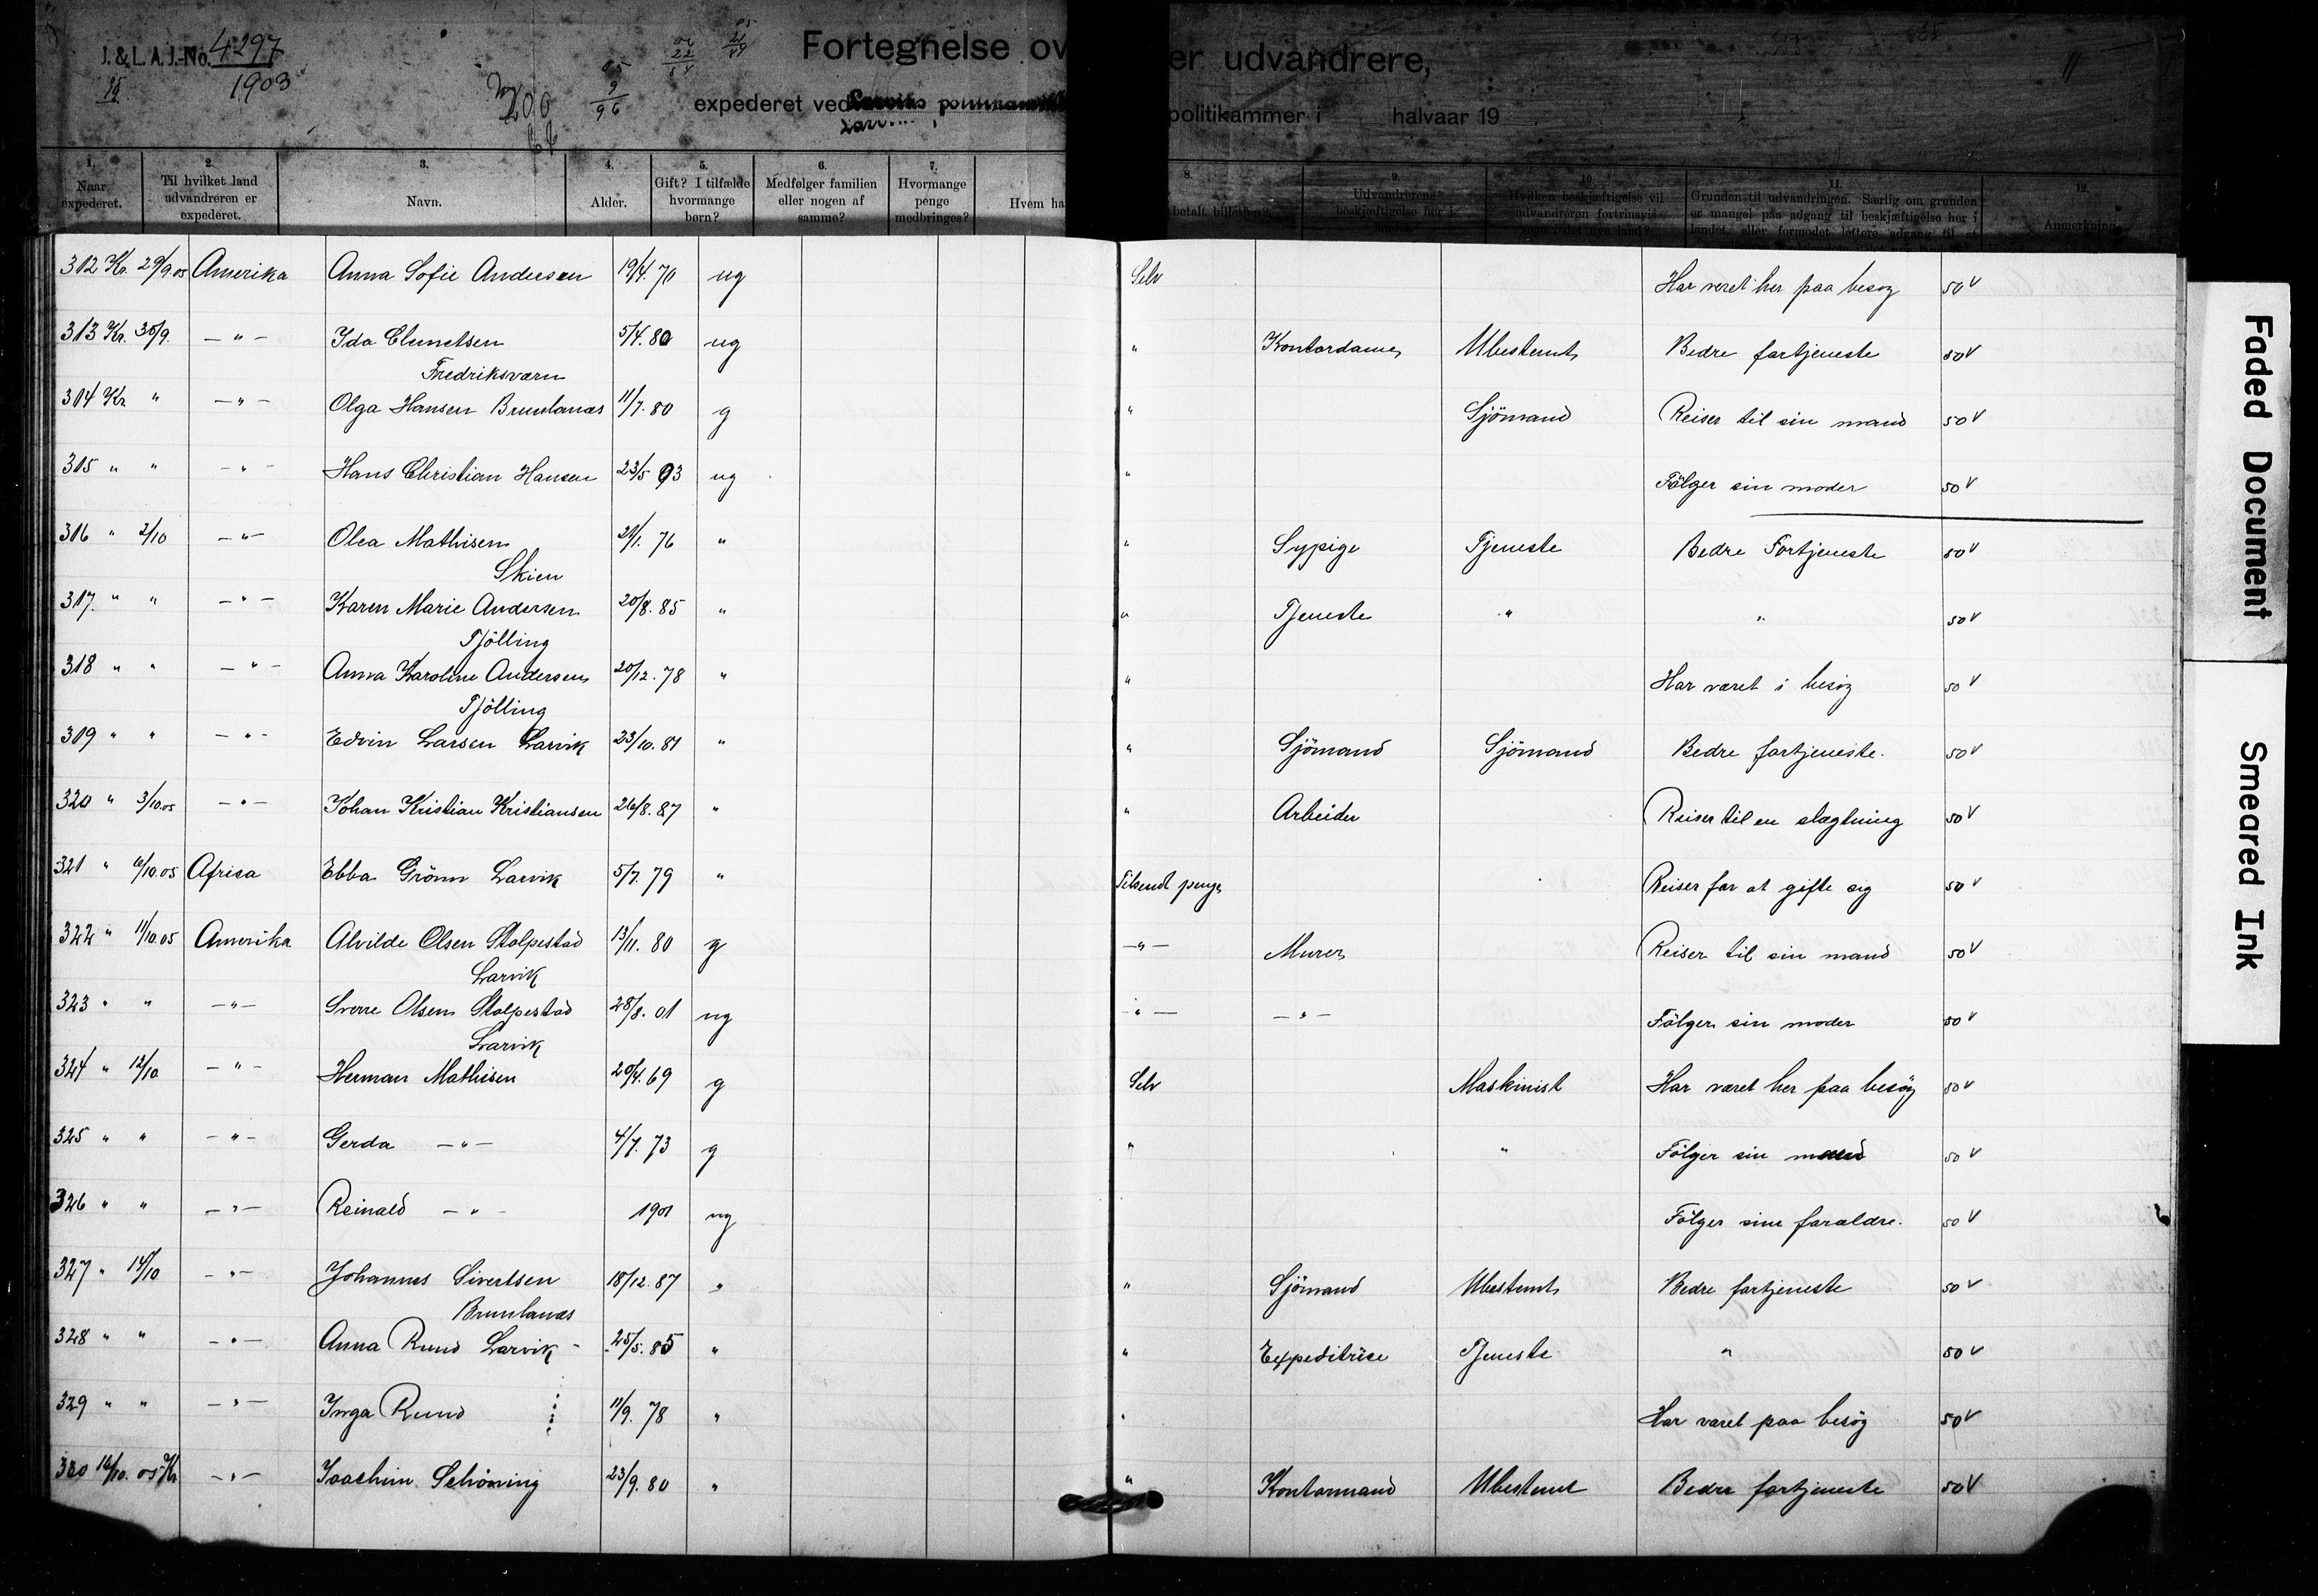 J. & L. A. J.-No. 4297
1903
200
Fortegnelse ov er udvandrere,
expederet ved politikammer i halvaar 19
1. Naar expederet.
2. Til hvilket land udvandreren er expederet.
3. Navn.
4. Alder.
5. Gift? I tilfælde hvormange børn?
6. Medfølger familien eller nogen af samme?
7. Hvormange penge medbringes?
8. Hvem ha betalt billetten?
9. Udvandrerens beskjæftigelse her i
10. Hvilken beskjæftigelse vil udvandreren fortrinsvis søge i det nye land?
11. Grunden til udvandringen. Særlig om grunden er mangel paa adgang til beskjæftigelse her i landet, eller formodet lettere adgang til at
12. Anmerkning.
312 Kr. 29/9.05 Amerika Anna Sofie Andersen 19/4.70 ug Selv Har veret her paa besøg 50 V
313 Kr. 30/9. — " — Ida Clemetsen 5/4.80 ug " Kontordame Ubestemt Bedre fortjeneste 50 V
Fredriksværn
304 Kr " — " — Olga Hansen Brunlanæs 11/7.80 g " Sjömand Reiser til sin mand 50 V
315 " " — " — Hans Christian Hansen 23/5 93 ug " Fölger sin moder 50 V
316 " 2/10 — " — Olea Mathisen 29/1. 76 " " Sypige Tjeneste Bedre Fortjeneste 50 V
Skien
317. " " — " — Karen Marie Andersen 20/8.85 " " Tjeneste " " 50 V
Tjölling
318 " " — " — Anna Karoline Andersen 20/12.78 " " Har været i besøg 50 V
Tjölling
319 " " — " — Edvin Larsen Larvik 23/10.81 " " Sjömand Sjömand Bedre fortjeneste. 50 V
320 " 3/10.05 — " — Johan Kristian Kristiansen 26/8.87 " " Arbeider Reiser til en slægtning 50 V
321 " 6/10.05 Africa Ebba Grönn Larvik 5/7.79 " Tilsendt penge Reiser for at gifte sig 50 V
322 " 11/10.05 Amerika Alvilde Olsen Stolpestad 13/11.80 g — " — Murer Reiser til sin mand 50 V
Larvik
323 " " — " — Sverre Olsen Stolpestad 28/8.01 ug — " — — " — Fölger sin moder 50 V
Larvik
324 " 12/10 — " — Herman Mathisen 20/4.69 g Selv Maskinist Har været her paa besög 50 V
325 " " — " — Gerda — " — 4/7.73 g " " Fölger sin mand 50 V
326 " " — " — Reinald — " — 1901 ug Fölger sine forældre. 50 V
327 " 14/10 — " — Johannes Sivertsen 18/12.87 " " Sjömand Ubestemt Bedre fortjeneste 50 V
Brunlanæs
328 " " — " — Anna Ruud Larvik 25/5.85 " " Expeditrice Tjeneste " 50 V
329 " " — " — Inga Ruud 11/9.78 " " Har været paa besög 50 V
330 16/10.05 Kr — " — Joachim Schöning 23/9.80 " " Kontormand Ubestemt Bedre fortjeneste 50 V
Faded Document
Smeared Ink